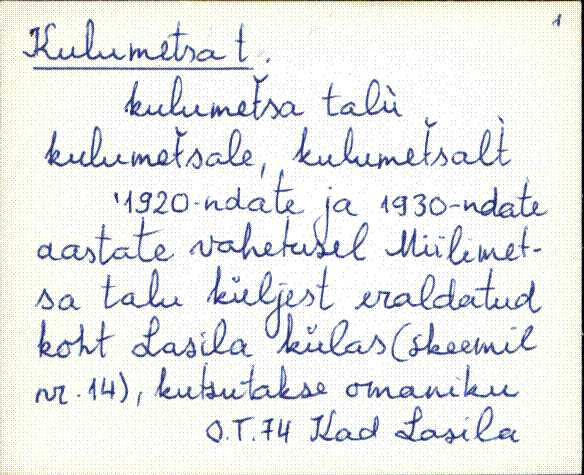 1
Kulumetsa t.
kulumet̆sa talù
kulumet̆sale, kulumet̆salt̀
'1920-ndate ja 1930-ndate
aastate vahetusel Miilimet-
sa talu küljest eraldatud
koht Lasila külas (skeemil
nr. 14), kutsutakse omaniku
O.T.74 Kad Lasila